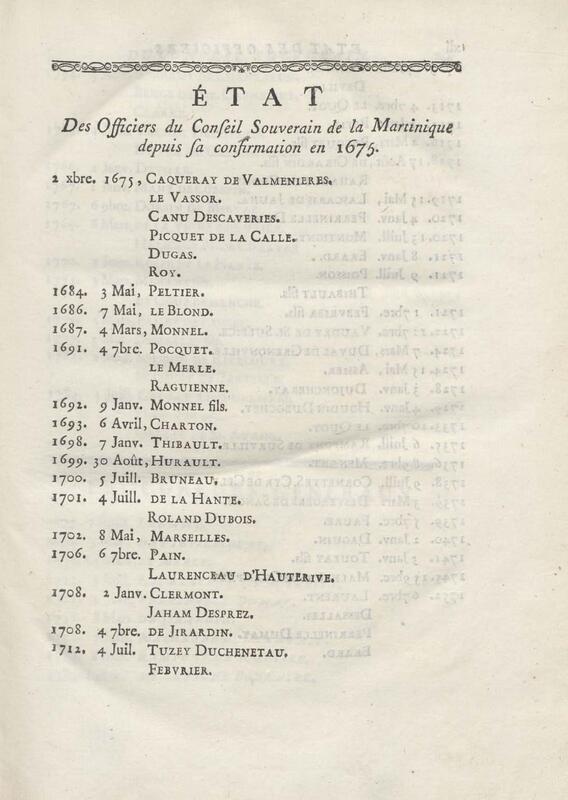 ÉTAT
Des Officiers du Conſeil Souverain de la Martinique
depuis ſa confirmation en 1675.
2 xbre. 1675, CAQUERAY DE VALMENIERES.
LE VASSOR.
CANU DESCAVERIES.
PICQUET DE LA CALLE.
DUGAS.
ROY.
1684. 3 Mai, PELTIER.
1686. 7 Mai, LE BLOND.
1687. 4 Mars, MONNEL.
1691. 4 7bre. POCQUET.
LE MERLE.
RAGUIENNE.
1692. 9 Janv. MONNEL fils.
1693. 6 Avril, CHARTON.
1698. 7 Janv. THIBAULT.
1699. 30 Août, HURAULT.
1700. 5 Juill. BRUNEAU.
1701. 4 Juill. DE LA HANTE.
ROLAND DUBOIS.
1702. 8 Mai, MARSEILLES.
1706. 6 7bre. PAIN.
LAURENCEAU D'HAUTERIVE.
1708. 2 Janv. CLERMONT.
JAHAM DESPREZ.
1708. 4 7bre. DE JIRARDIN.
1712. 4 Juil. TUZEY DUCHENETAU.
FEBVRIER.